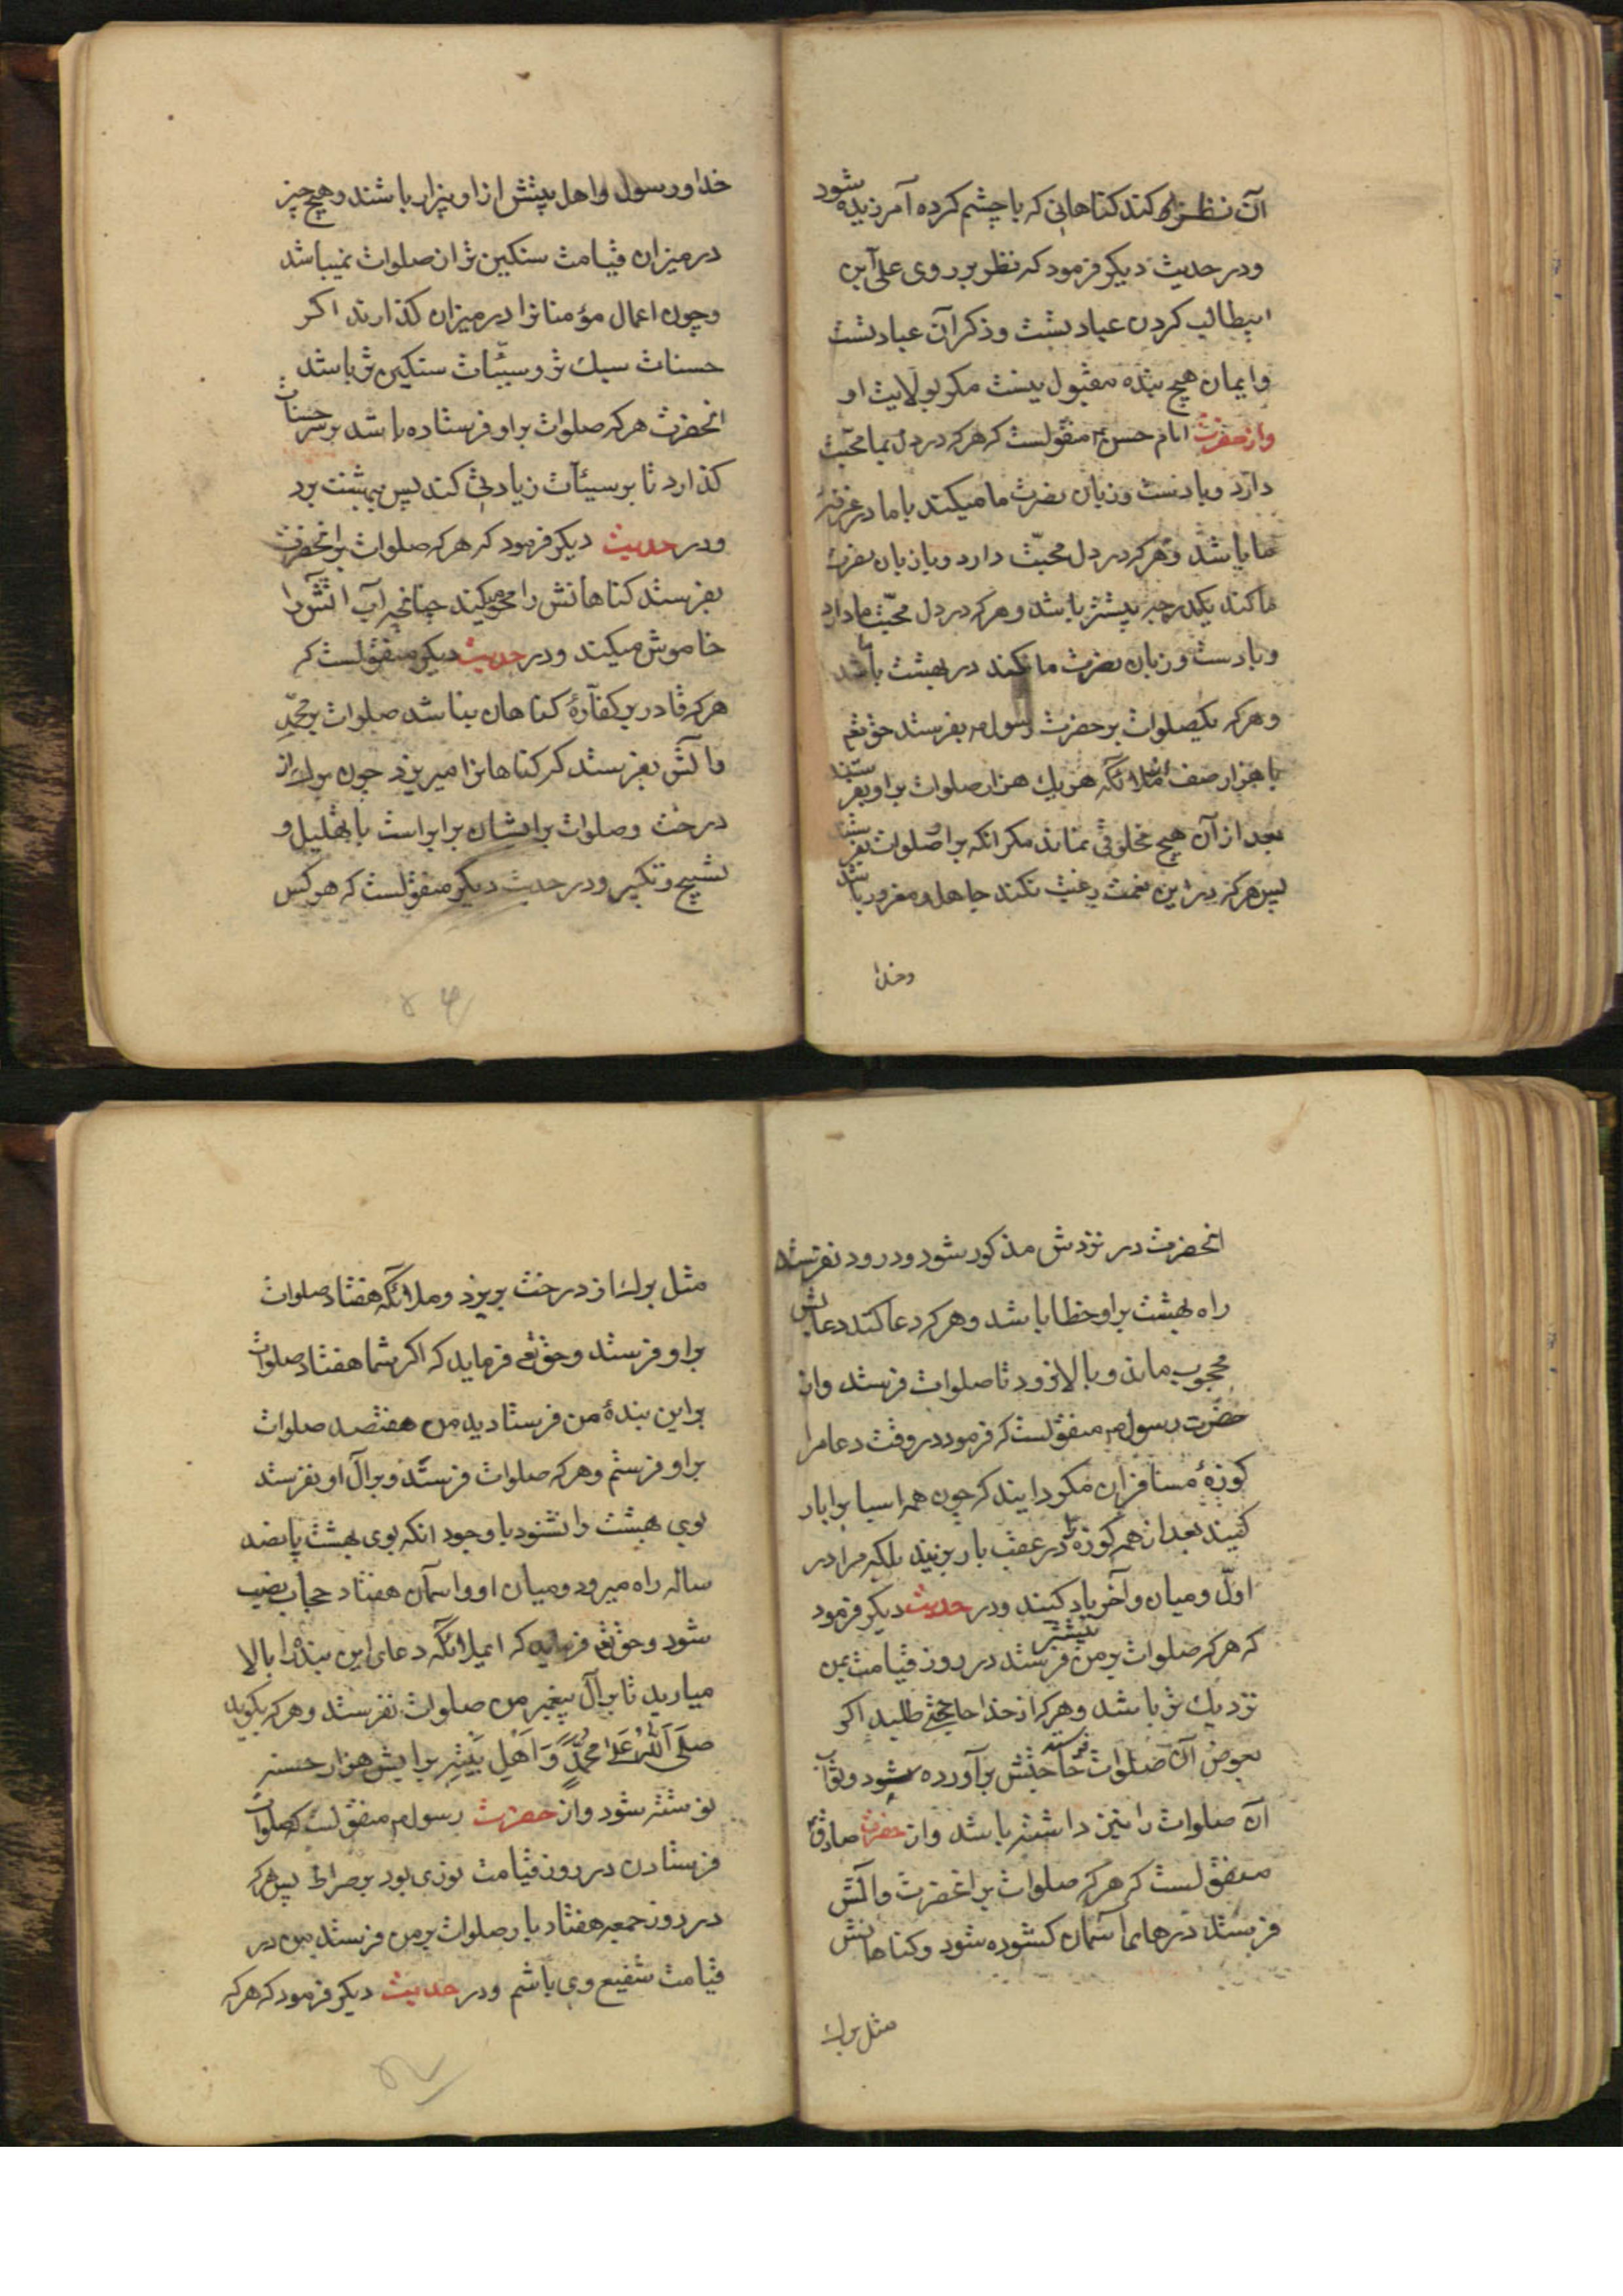 آن نظر کند کناهانی که با چشم کرده آمرزیده شود
ودر حدیث دیکر فرمود که نظر بر روی علی ابن
ابیطالب کردن عبادتست وذکر آن عبادتست
وایمان هیچ بنده مقبول نیست مکر بولایت او
واز حضرت امام حسن ع منقولست که هرکه در دل بما محبّت
دارد وبا دست وزبان نصرت ما میکند با ما در غرفهٔ
ما باشد وهرکه در دل محبّت دارد وبا زبان نصرت
ما کند یکدرجه پستتر باشد وهرکه در دل محبّت ما دارد
وبا دست وزبان نصرت ما نکند در بهشت با ما باشد
وهرکه یکصلوات بر حضرت رسول ص بفرستد حق تعم
با هزار صف ملائکه هریک هزار صلوات بر او بفرستند
بعد از آن هیچ مخلوقی نماند مکر انکه بر او صلوات بفرستد
پس هرکه در این نعمت رغبت نکند جاهل ومغرور باشد
وخدا
خدا ورسول واهل بیتش از او بیزار باشند وهیچ چیز
در میزان قیامت سنکین تر از صلوات نمیباشد
وچون اعمال مؤمنانرا در میزان کذارند اکر
حسنات سبک تر وسیّئات سنکین تر باشد
انحضرت هرکه صلوات بر او فرستاده باشد بر سر حسنات
کذارد تا بر سیئآت زیادتی کند پس ببهشت برد
ودر حدیث دیکر فرمود که هرکه صلوات بر انحضرت
بفرستد کناهانش را محو میکند چنانچه آب اتش را
خاموش میکند ودر حدیث دیکر منقولست که
هرکه قادر بر کفّارهٔ کناهان نباشد صلوات بر محمّد
وآلش بفرستد که کناهانرا میریزد چون برک از
درخت وصلوات بر ایشان برابر است با تهلیل و
تسبیح وتکبیر ودر حدیث دیکر منقولست که هرکس
انحضرت در نزدش مذکور شود ودرود نفرستد
راه بهشت بر او خطا باشد وهرکه دعا کند دعایش
محجوب ماند وبالا نرود تا صلوات فرستد واز
حضرت رسول ص منقولست که فرمود در وقت دعا مرا
کوزهٔ مسافران مکردانید که چون همه اسباب را بار
کنند بعد از همه کوزه را در عقب بار بزنند بلکه مرا در
اوّل ومیان وآخر یاد کنند ودر حدیث دیکر فرمود
که هرکه صلوات بر من بیشتر فرستد در روز قیامت بمن
نزدیک تر باشد وهرکه از خدا حاجتی طلبد اکر
بعوض آن صلوات فرستد حاجتش برآورده شود وثواب
آن صلوات را نیز داشته باشد واز حضرت صادق ع
منقولست که هرکه صلوات بر انحضرت وآلش
فرستد درهای آسمان کشوده شود وکناهانش
مثل برک
مثل برک از درخت بریزد وملائکه هفتاد صلوات
بر او فرستند وحق تعم فرماید که اکر شما هفتاد صلوات
بر این بندهٔ من فرستادید من هفتصد صلوات
بر او فرستم وهرکه صلوات فرستد وبر آل او نفرستد
بوی بهشت را نشنود با وجود انکه بوی بهشت پانصد
ساله راه میرود ومیان او واسمان هفتاد حجاب نصیب
شود وحق تعم فرماید که ایملائکه دعای این بنده را بالا
میارید تا بر آل پیغمبر من صلوات نفرستد وهرکه بکوید
صَلَی اَللّٰهُ عَلیٰ مُحَمَّدٍ وَ اَهْلِ بَیْتِهِ برایش هزار حسنه
نوشته شود واز حضرت رسول ص منقولست که صلوات
فرستادن در روز قیامت نوری بود بر صراط پس هرکه
در روز جمعه هفتاد بار صلوات بر من فرستد من در
قیامت شفیع وی باشم ودر حدیث دیکر فرمود که هرکه